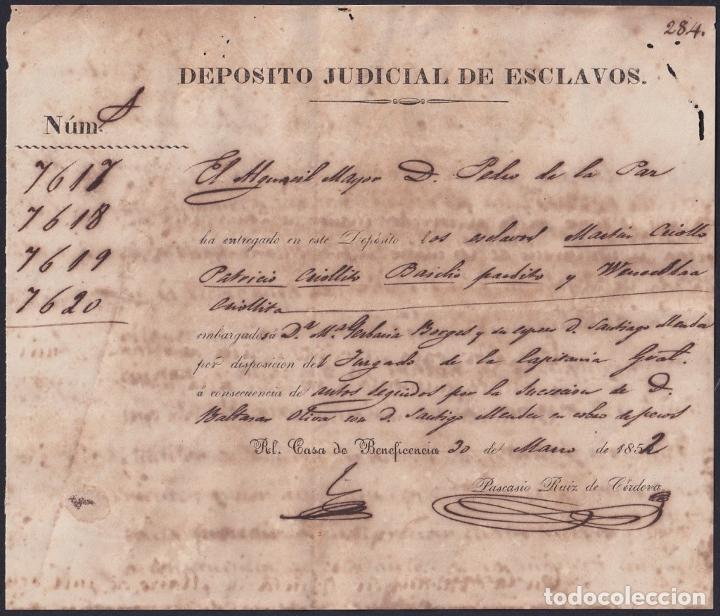 284.
DEPOSITO JUDICIAL DE ESCLAVOS.
Núm.s
7617
7618
7619
7620
El Alguacil Mayor D. Pedro de la Paz
ha entregado en este Depósito los esclavos Martin Criollo
Patricio Criollito Basilio pardito y Wenceslaa
Criollita
embargados á D.ª M.ª Borges y su esposo D. Santiago Mendez
por disposicion del Juzgado de la Capitania Gral.
á consecuencia de autos seguidos por la sucesion de D.
Baltasar Oliva con D. Santiago Mendez en cobro de pesos
Rl. Casa de Beneficencia 30 de Marzo de 1852
Pascasio Ruiz de Córdova
todocoleccion.net